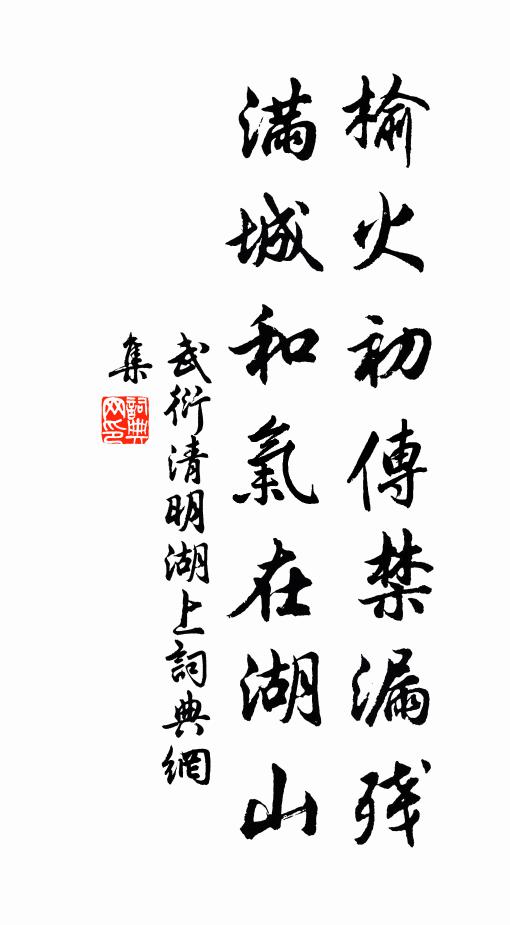 榆火初傳禁漏残
滿城和氣在湖山
武衍清明湖上詞典網
集
詞典網印